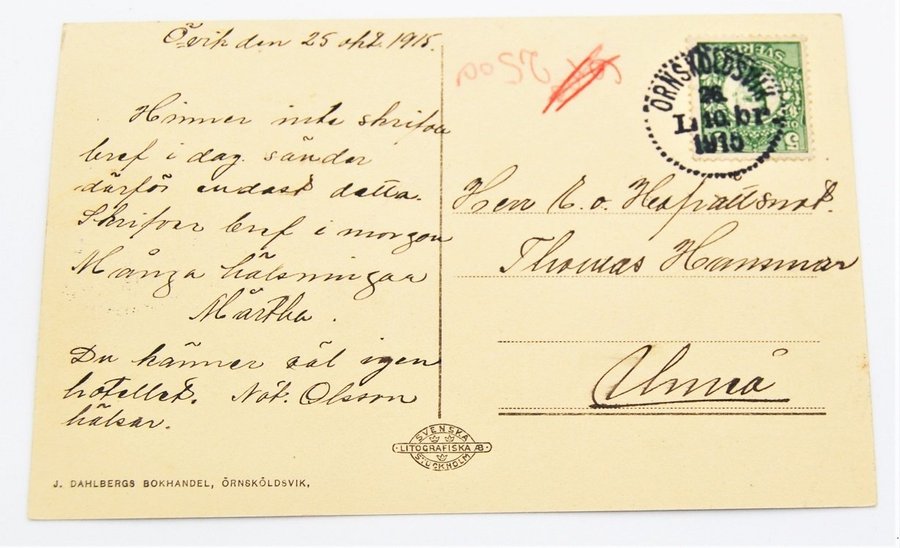 Övik den 25 okt. 1915.
Hinner inte skrifva
bref i dag sänder
därför endast detta.
Skrifver bref i morgon
Många hälsningar
Märtha.
Du känner väl igen
hotellet. Not. Olsson
hälsar.
J. DAHLBERGS BOKHANDEL, ÖRNSKÖLDSVIK,
SVENSKA
LITOGRAFISKA AB
STOCKHOLM
2500
SVERIGE
5
ÖRNSKÖLDSVIK
26.
10.
1915
Herr E. o. Hofrättsnot.
Thomas Hammar
Umeå